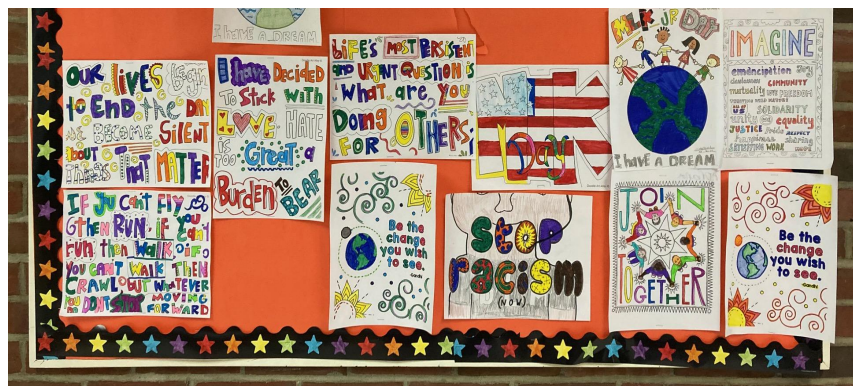 I HAVE A DREAM
OUR LIVES Begin
to End the DAY
we BECOME SILENT
about
THINGS THAT MATTER
I have Decided
TO Stick with
Love. HATE
is too Great a
Burden TO BEAR
LIFE'S MOST PERSISTENT
AND URGENT QUESTION is
What are you
Doing
FOR OTHERS
MLK JR DAY
I HAVE A DREAM
IMAGINE
emancipation
COMMUNITY
mutuality FREEDOM
US SOLIDARITY
unity equality
JUSTICE RESPECT
sharing
WORK
IF YOU Can't Fly
then RUN, if you can't
run, then WALK, if
YOU CAN'T WALK THEN
CRAWL, BUT WHATEVER
YOU DO MOVING
FORWARD
Be the
change
you wish
to see.
-Gandhi
STOP
racism
(NOW)
JOIN
TOGETHER
Be the
change
you wish
to see.
-Gandhi